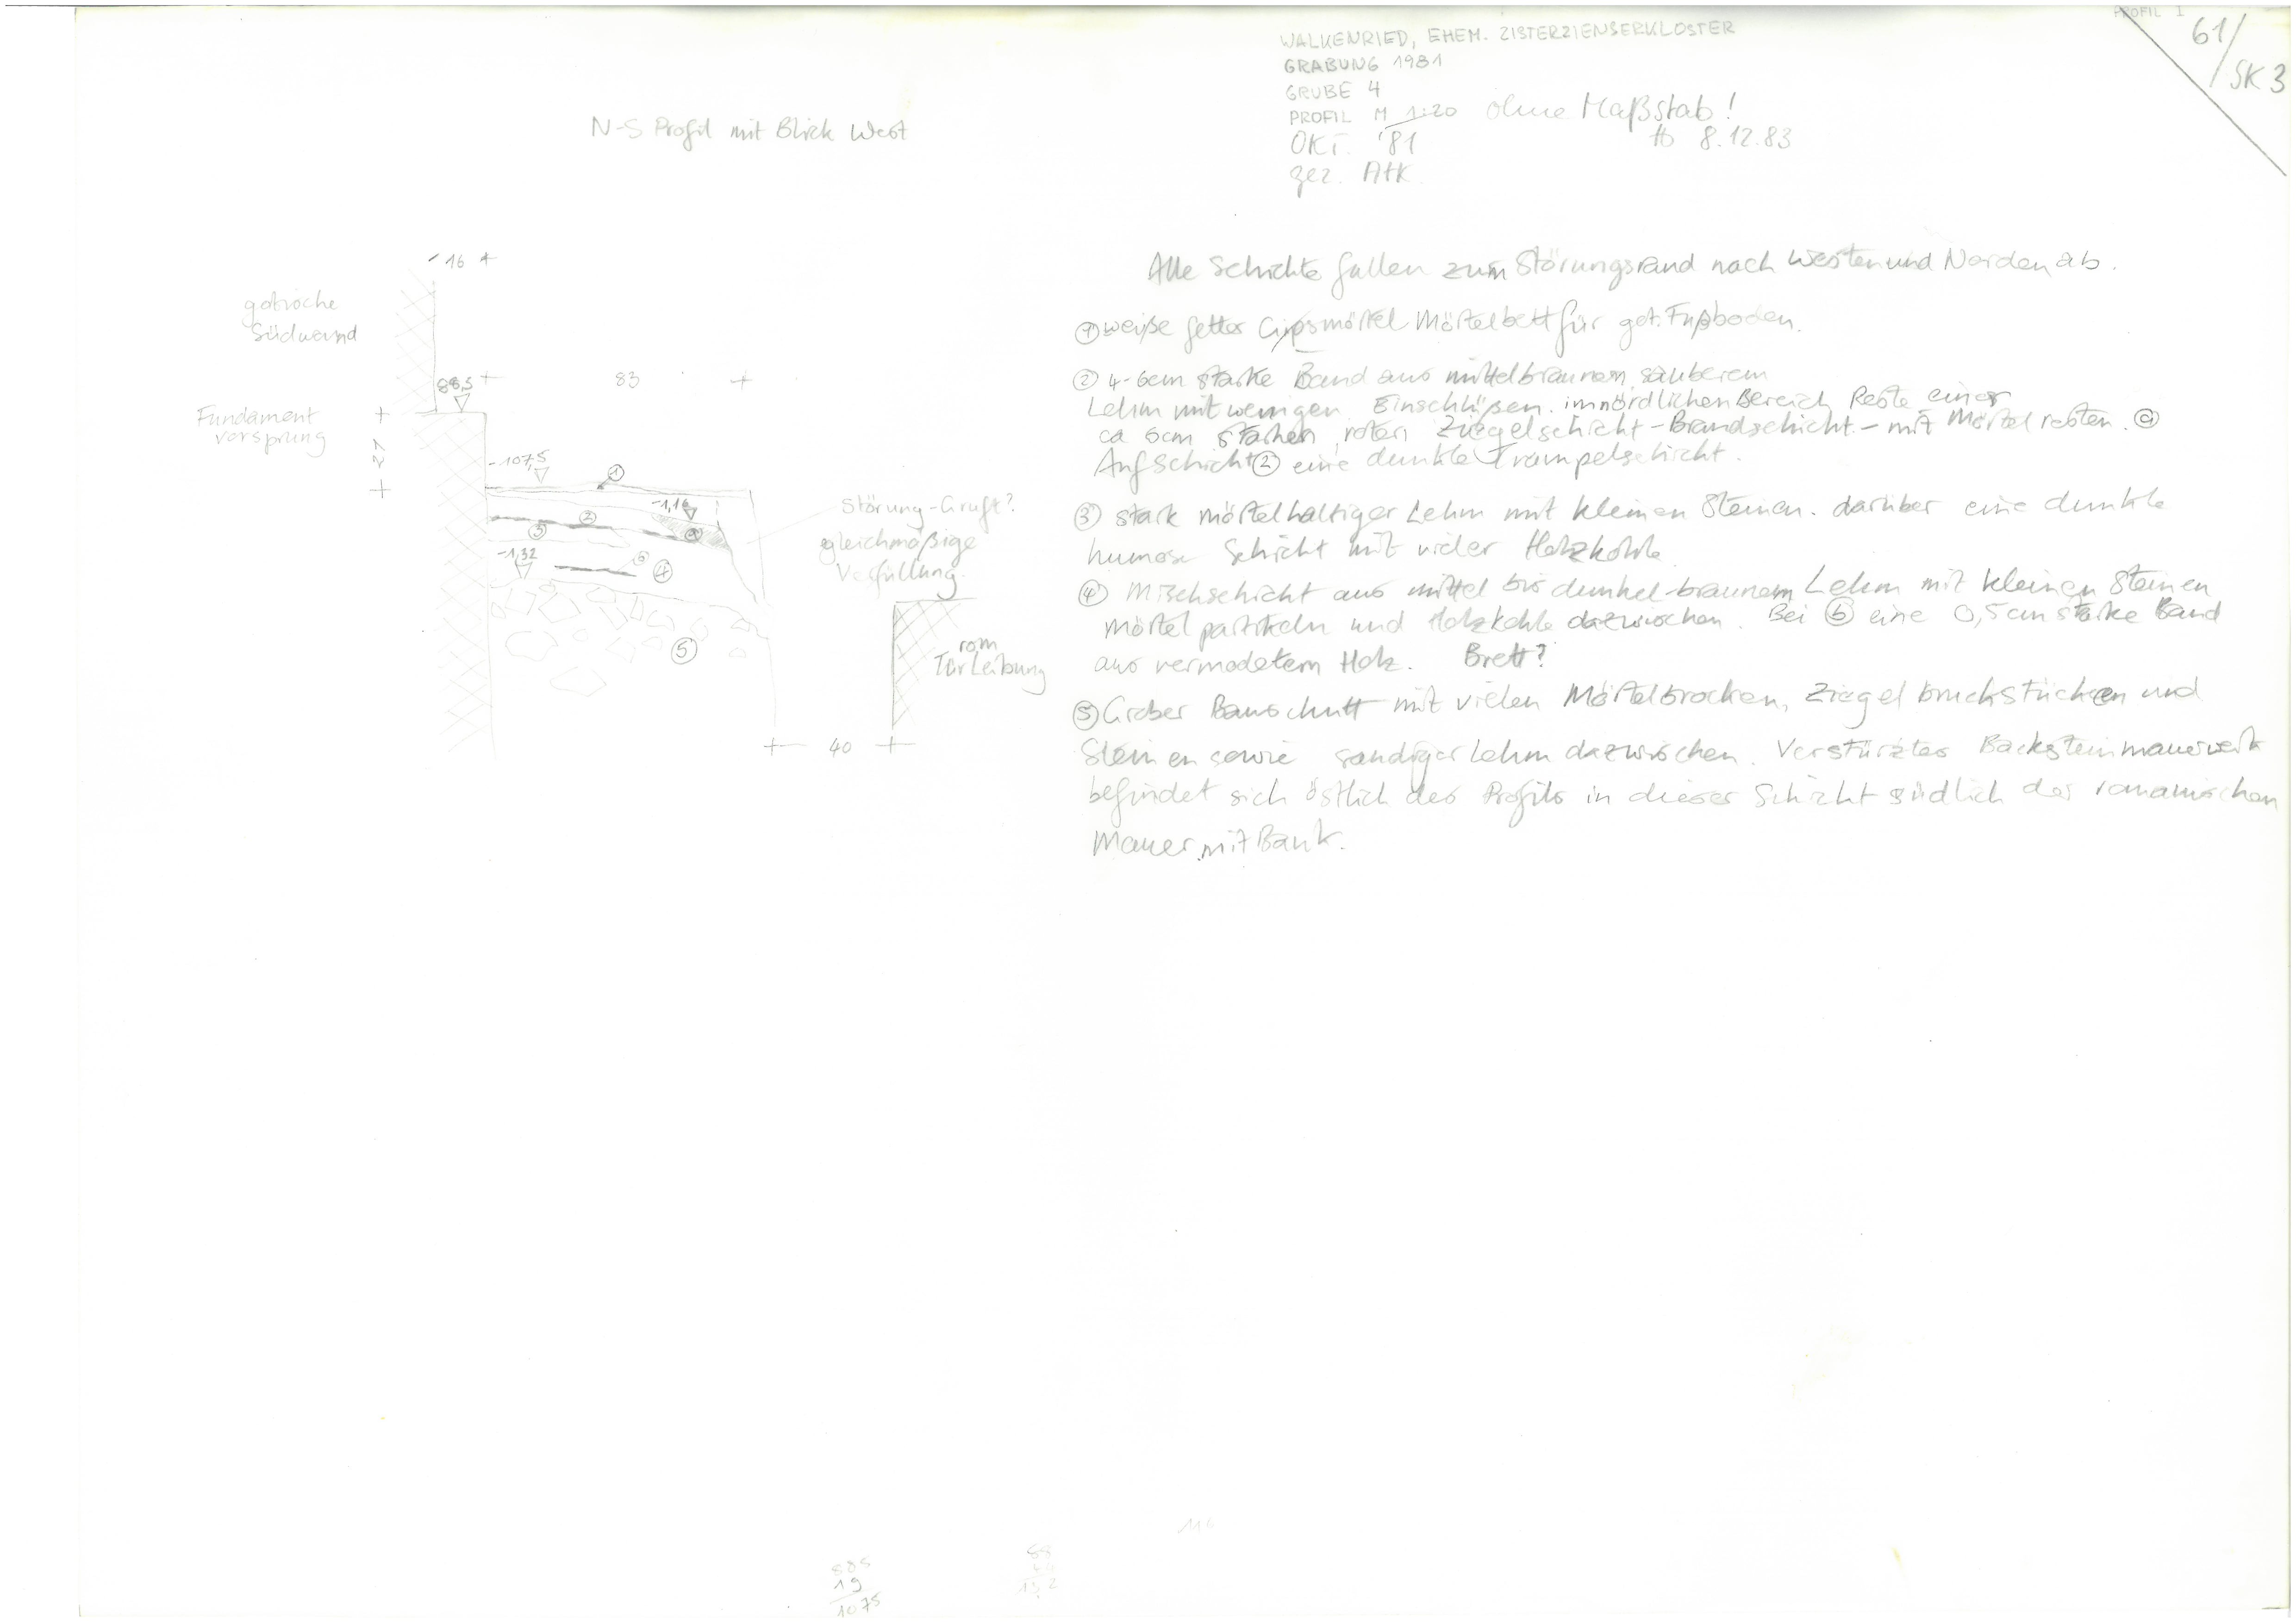 PROFIL I
61/
SK 3
WALKENRIED, EHEM. ZISTERZIENSERKLOSTER
GRABUNG 1981
GRUBE 4
PROFIL M 1:20 ohne Maßstab!
OKT. '81
8.12.83
gez. AHK.
N-S Profil mit Blick West
16
gotische
Südwand
88,5
83
Fundament
vorsprung
-107,5
1
-1,16
2
3
a
-1,32
6
4
5
Störung-Gruft?
gleichmäßige
Verfüllung.
rom
Türleibung
40
Alle Schichte fallen zum Störungsrand nach Westen und Norden ab.
① weiße fetter Gipsmörtel Mörtelbett für got. Fußboden.
② 4-6cm starke Band aus mittelbraunem, sauberem
Lehm mit wenigen Einschlüßen. im nördlichen Bereich Reste einer
ca 6cm starken roten Ziegelschicht-Brandschicht- mit Mörtelresten. ⓐ
Auf Schicht ② eine dunkle Trampelschicht.
③ stark mörtelhaltiger Lehm mit kleinen Steinen. darüber eine dunkle
humose Schicht mit vieler Holzkohle
④ Mischschicht aus mittel bis dunkel-braunem Lehm mit kleinen Steinen
Mörtelpartikeln und Holzkohle dazwischen. Bei ⓑ eine 0,5cm starke Band
aus vermodetem Holz. Brett?
⑤ Grober Bauschutt mit vielen Mörtelbrocken, Ziegelbruchstücken und
Steinen sowie sandiger Lehm dazwischen. Verstürztes Backsteinmauerwerk
befindet sich östlich des Profils in dieser Schicht südlich der romanischen
Mauer mit Bank.
885
19
1075